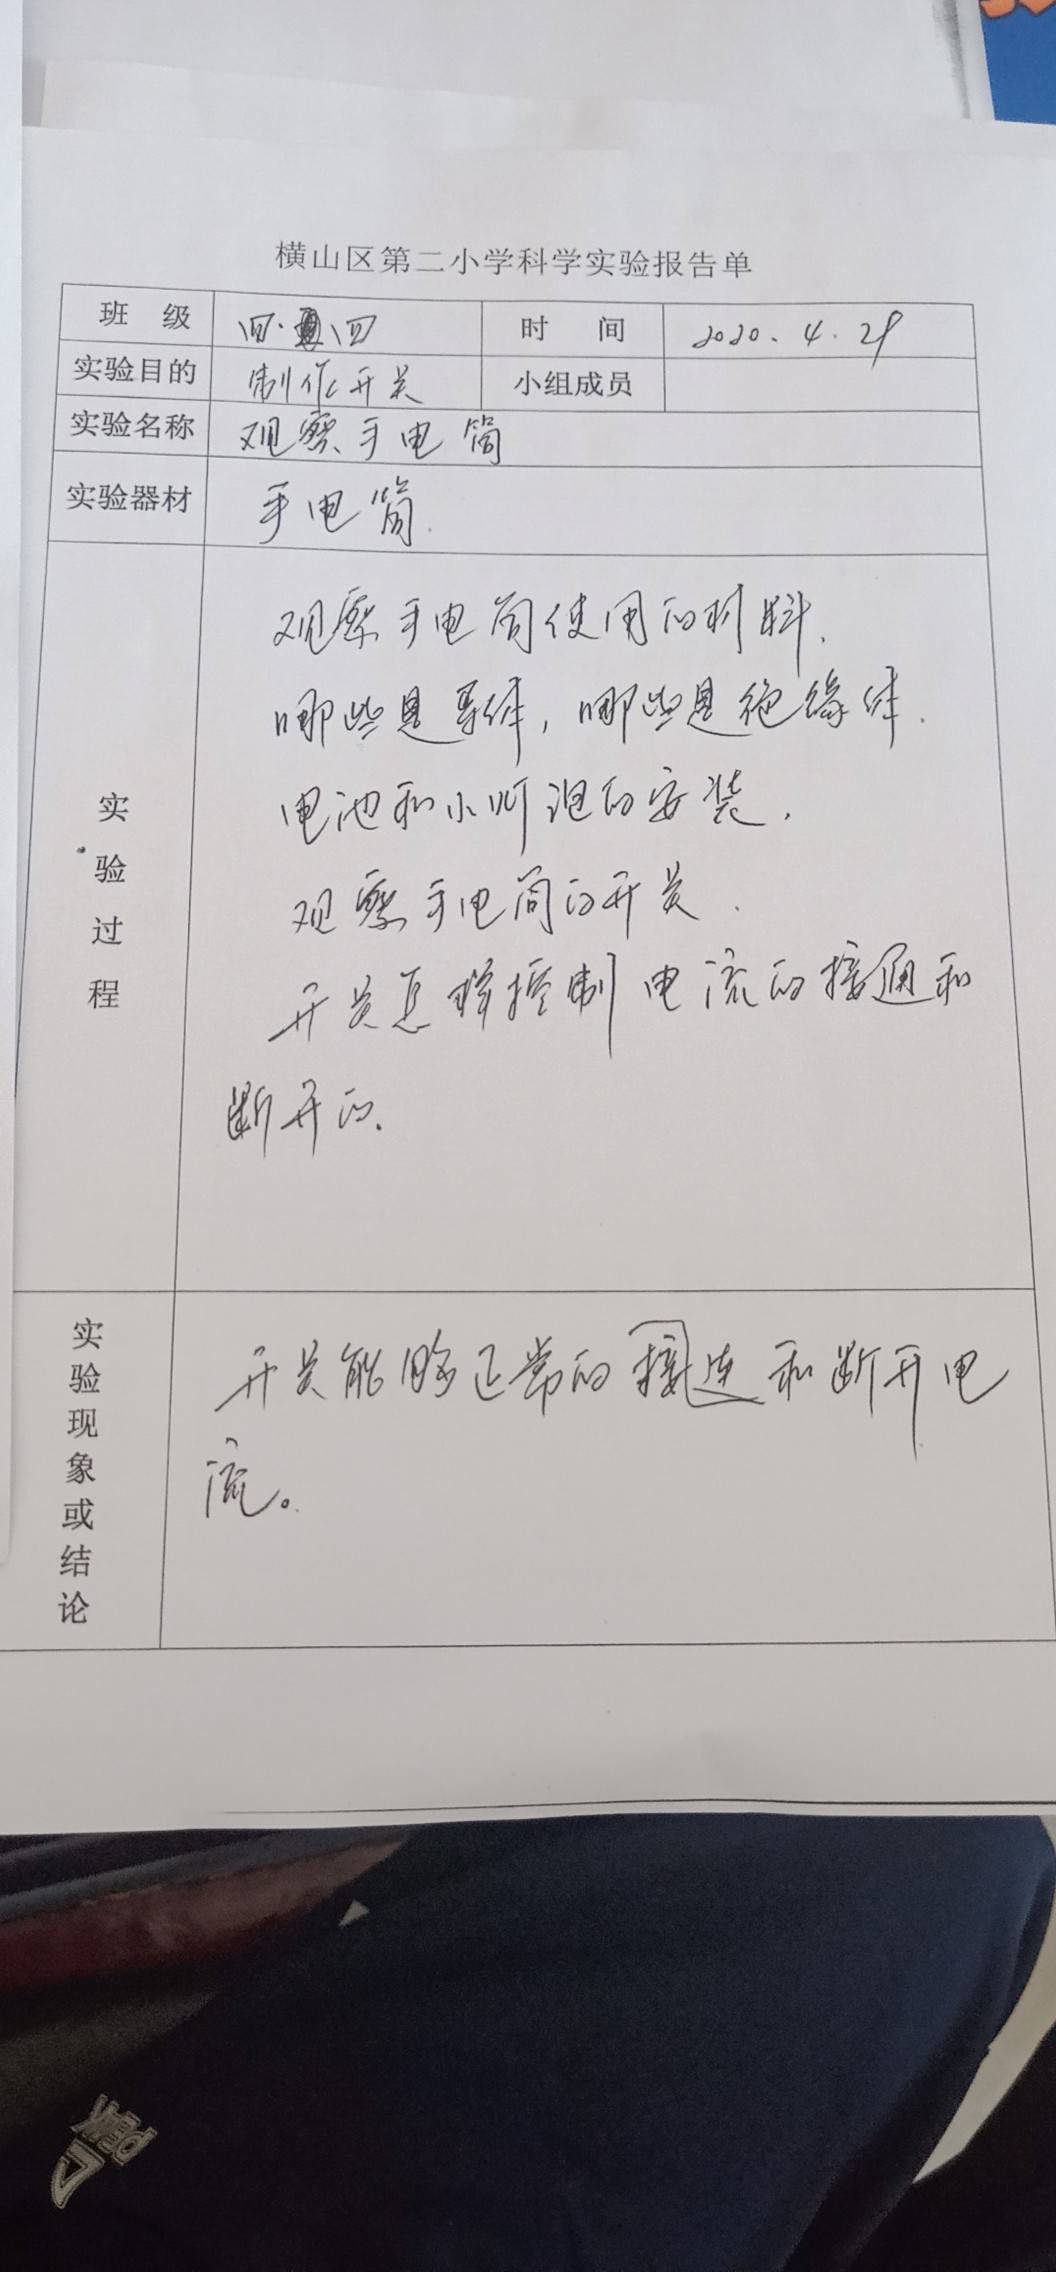 横山区第二小学科学实验报告单
班 级 四.四 时 间 2020.4.29
实验目的 制作开关 小组成员
实验名称 观察手电筒
实验器材 手电筒.
实验过程
观察手电筒使用的材料.
哪些是导体,哪些是绝缘体.
电池和小灯泡的安装.
观察手电筒的开关.
开关怎样控制电流的接通和
断开的.
实验现象或结论
开关能够正常的接连和断开电
流。